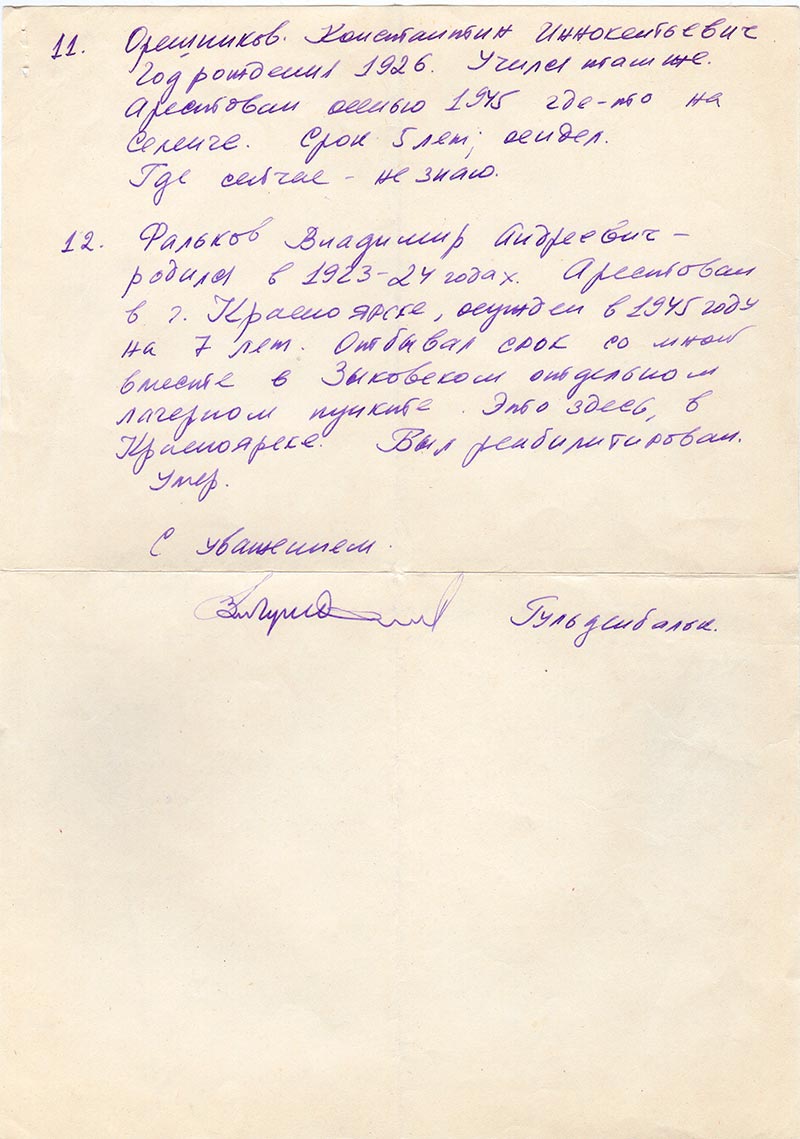 11. Орешников. Константин Иннокентьевич
Год рождения 1926. Учился там же.
Арестован осенью 1945 где-то на
Селенге. Срок 5 лет; осидел.
Где сейчас - не знаю.
12. Фальков Владимир Андреевич -
родился в 1923-24 годах. Арестован
в г. Красноярске, осужден в 1945 году
на 7 лет. Отбывал срок со мной
вместе в Зыковском отдельном
лагерном пункте. Это здесь, в
Красноярске. Был реабилитирован.
Умер.
С уважением.